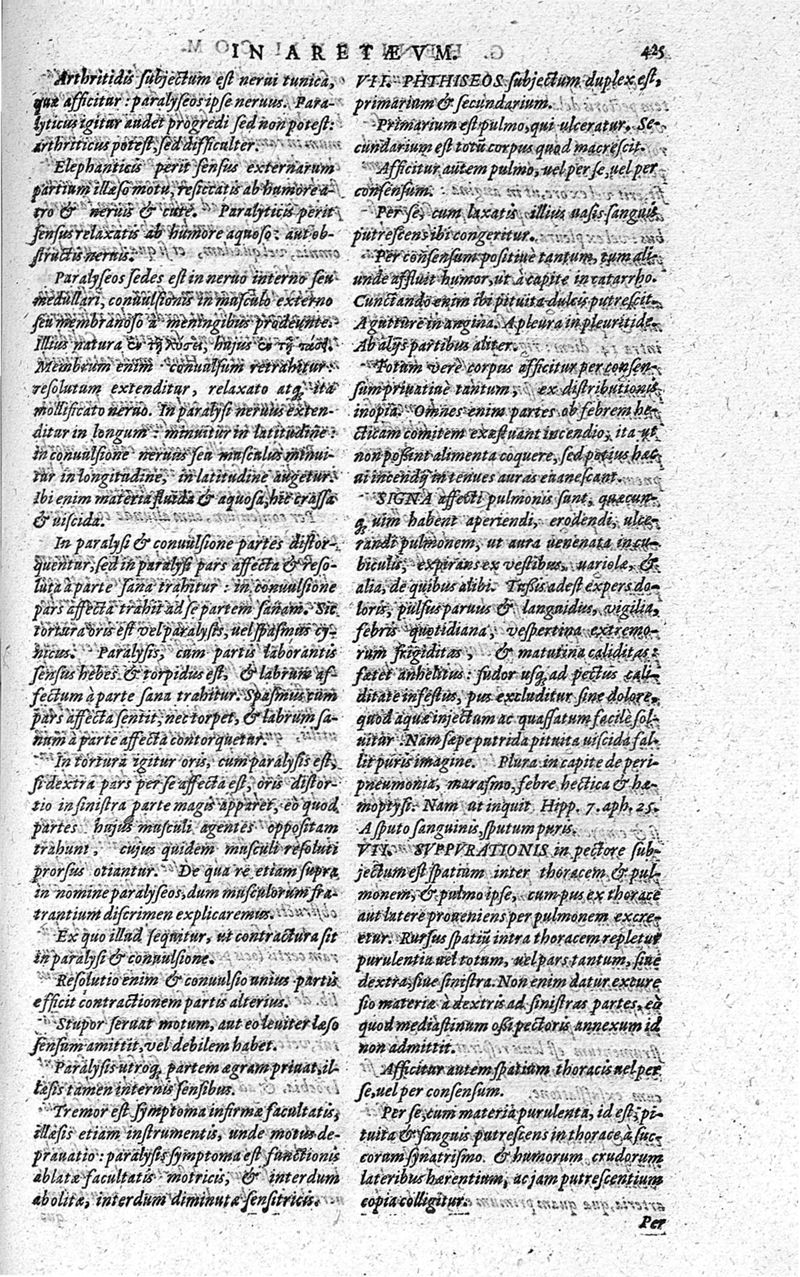 IN ARETÆVM.
425
Arthritidis subjectum est nerui tunica,
quæ afficitur: paralyseos ipse neruus. Para-
lyticus igitur audet progredi sed non potest:
arthriticus potest, sed difficulter.
Elephanticis perit sensus externarum
partium illæso motu, resiccatis ab humore a-
tro & neruis & cute. Paralyticis perit
sensus relaxatis ab humore aquoso: aut ob-
structis neruis.
Paralyseos sedes est in neruo interno seu
medullari, conuulsionis in musculo externo
seu membranoso à meningibus prodeunte.
Illius natura ἐν τῇ, hujus ἐν τῇ
Membrum enim conuulsum retrahitur:
resolutum extenditur, relaxato atq; ita
mollificato neruo. In paralysi neruus exten-
ditur in longum: minuitur in latitudine:
in conuulsione neruus seu musculus minui-
tur in longitudine, in latitudine augetur.
Ibi enim materia fluida & aquosa, hic crassa
& uiscida.
In paralysi & conuulsione partes distor-
quentur, sed in paralysi pars affecta & reso-
luta à parte sana trahitur: in conuulsione
pars affecta trahit ad se partem sanam. Sic
tortura oris est vel paralysis, uel spasmus cy-
nicus. Paralysis, cum partis laborantis
sensus hebes & torpidus est, & labrum af-
fectum à parte sana trahitur. Spasmus cum
pars affecta sentit, nec torpet, & labrum sa-
num à parte affecta contorquetur.
In tortura igitur oris, cum paralysis est,
si dextra pars per se affecta est, oris distor-
tio in sinistra parte magis apparet, eò quod
partes hujus musculi agentes oppositam
trahunt, cujus quidem musculi resoluti
prorsus otiantur. De qua re etiam supra
in nomine paralyseos, dum musculorum fra-
trantium discrimen explicaremus.
Ex quo illud sequitur, ut contractura sit
in paralysi & conuulsione.
Resolutio enim & conuulsio unius partis
efficit contractionem partis alterius.
Stupor seruat motum, aut eo leuiter læso
sensum amittit, vel debilem habet.
Paralysis utroq; partem ægram priuat, il-
læsis tamen internis sensibus.
Tremor est symptoma infirmæ facultatis,
illæsis etiam instrumentis, unde motus de-
prauatio: paralysis symptoma est functionis
ablatæ facultatis motricis, & interdum
abolitæ, interdum diminutæ sensitricis.
VII. PHTHISEOS subjectum duplex est,
primarium & secundarium.
Primarium est pulmo, qui ulceratur. Se-
cundarium est totū corpus quod macrescit.
Afficitur autem pulmo, vel per se, vel per
consensum.
Per se, cum laxatis illius uasis sanguis
putrescens ibi congeritur.
Per consensum positiue tantum, tum ali-
unde affluit humor, ut à capite in catarrho.
Cunctando enim ibi pituita dulcis putrescit.
A gutture in angina. A pleura in pleuritide.
Ab alijs partibus aliter.
Totum verò corpus afficitur per consen-
sum priuatiuè tantum, ex distributionis
inopia. Omnes enim partes ob febrem he-
cticam comitem exæstuant incendio, ita ut
non possint alimenta coquere, sed potius hæc
ui incendij in tenues auras euanescant.
SIGNA affecti pulmonis sunt, quæcun-
q; uim habent aperiendi, erodendi, ulce-
randi pulmonem, ut aura uenenata in cu-
biculis, expirans ex vestibus, uariolæ, &
alia, de quibus alibi. Tussis adest expers do-
loris, pulsus paruus & languidus, vigilia,
febris quotidiana, vespertina extremo-
rum frigiditas, & matutina caliditas:
fœtet anhelitus: sudor usq; ad pectus cali-
ditate infestus, pus excluditur sine dolore,
quod aquæ injectum ac quassatum facilè sol-
uitur. Nam sæpe putrida pituita uiscida fal-
lit puris imagine. Plura in capite de peri-
pneumonia, marasmo, febre hectica & hæ-
moptysi. Nam ut inquit Hipp. 7. aph. 25.
A sputo sanguinis, sputum puris.
VII. SVPPVRATIONIS in pectore sub-
jectum est spatium inter thoracem & pul-
monem, & pulmo ipse, cum pus ex thorace
aut latere proueniens per pulmonem excre-
etur. Rursus spatiū intra thoracem repletur
purulentia vel totum, uel pars tantum, siue
dextra, siue sinistra. Non enim datur excur-
sio materiæ à dextris ad sinistras partes, eò
quod mediastinum ossi pectoris annexum id
non admittit.
Afficitur autem spatium thoracis uel per
se, vel per consensum.
Per se, cum materia purulenta, id est, pi-
tuita & sanguis putrescens in thorace à suc-
corum synatrismo. & humorum crudorum
lateribus hærentium, ac jam putrescentium
copia colligitur.
Per